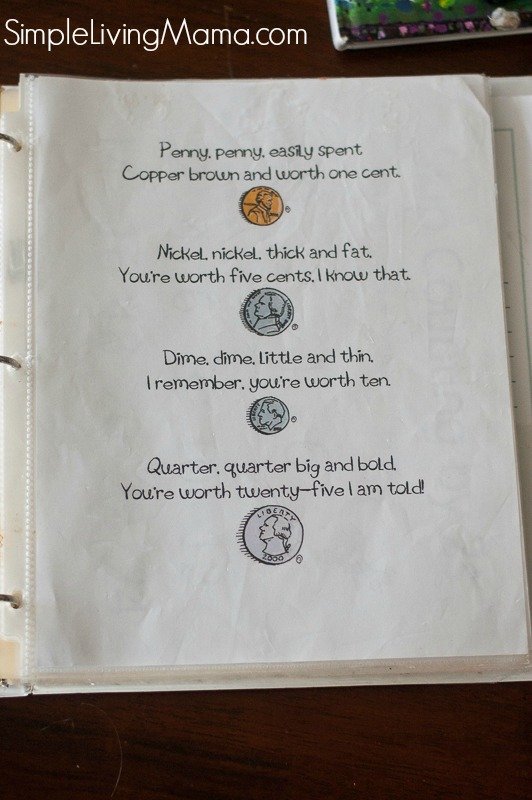 SimpleLivingMama.com
Penny, penny, easily spent
Copper brown and worth one cent.
Nickel, nickel, thick and fat,
You're worth five cents, I know that.
Dime, dime, little and thin,
I remember, you're worth ten.
Quarter, quarter big and bold,
You're worth twenty-five I am told!
LIBERTY
2000